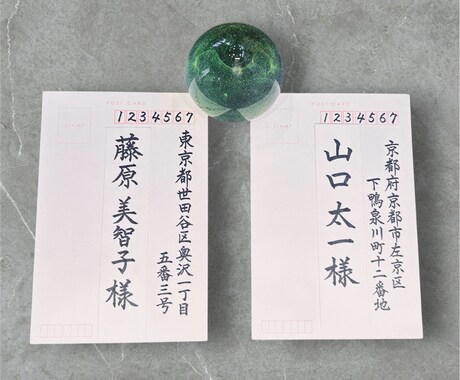 POST CARD
1234567
東京都世田谷区奥沢一丁目
五番三号
藤原美智子様
POST CARD
1234567
京都府京都市左京区
下鴨泉川町十二番地
山口太一様